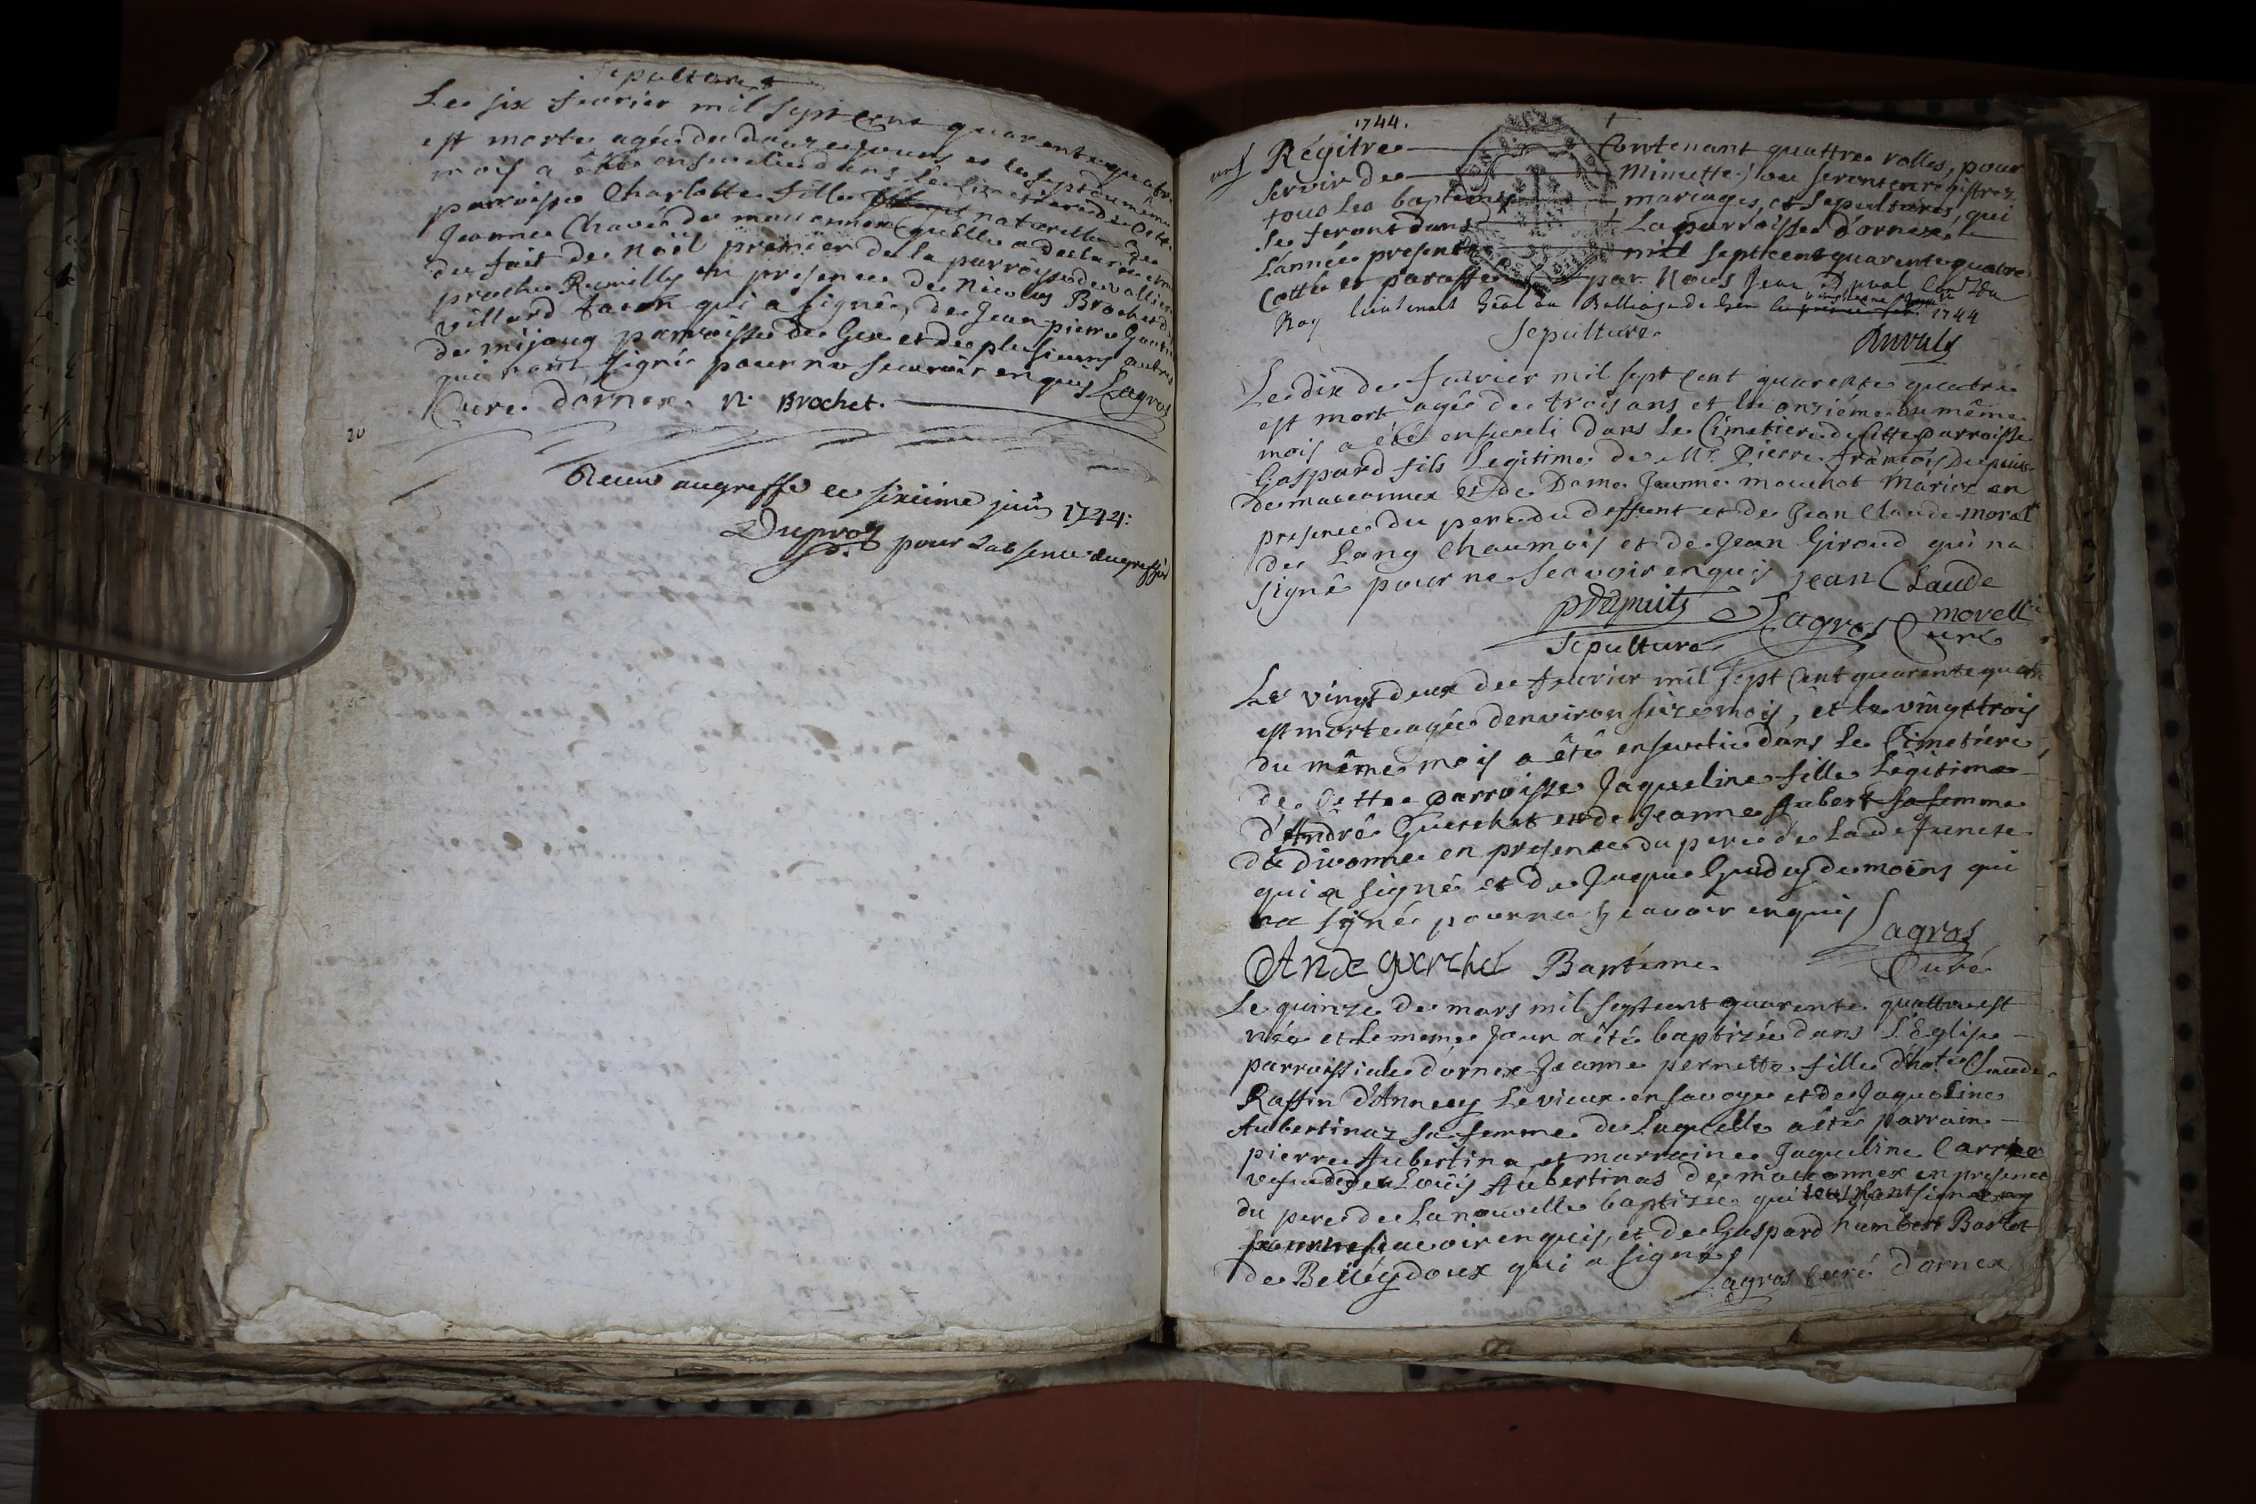 Sepulture
Le six fevrier mil sept Cent quarente quatre
est morte agée de douze jours et le septieme du même
mois a êté ensevelie dans le Cimetiere de Cette
parroisse Charlotte fille naturelle de
Jeanne Chavé de maconnex quelle a declaré etre
du fait de Noël premier de la parroisse de vallier
proche Rumilly en presence de Nicolas Brochet de
villard qui a signé, de Jean pierre
de mijoug parroisse de Gex et de plusieurs autres
qui n'ont signé pour ne scavoir enquis Lagros
Curé d'ornex. N. Brochet.
20
Receu au greffe ce sixiême juin 1744:
Duproz pour l'absence du greffier
1744.
Régitre Contenant quattre rolles, pour
servir de Minutte, ou seront enregistrez
tous les baptemes mariages, et sepultures, qui
se feront dans La parroisse d'ornex, le
L'année presente mil sept cent quarente quatre
Cotté et paraffé par Nous Jean Duval Con.er du
Roy lieutenant Gñal au Balliage de Gex 1744
Sepulture Duvals
Le dix de fevrier mil sept Cent quarente quatre
est mort agé de trois ans et le onziéme du même
mois a êté enseveli dans Le Cimetiere de Cette parroisse
Gaspard fils Legitime de Mr. Pierre françois Depuits
de maconnex et de Dame Jeanne mouenot Mariez en
presence du pere du deffunt et de Jean Claude morel
de Long Chaumois et de Jean Giroud qui n'a
signé pour ne scavoir enquis Jean Claude
pDepuits Lagros Curé morell
Sepulture
Le vingt deux de fevrier mil sept Cent quarente quatre
est morte agée d'environ seize mois, et le vingt trois
du même mois a êté ensevelie dans Le Cimetiére
de Cette parroisse Jaqueline fille Légitime
d'André Guerchet et de Jeanne Aubert sa femme
de divonne en presence du pere de La defuncte
qui a signé et de Jaque Grudey de moëns qui
n'a signé pour ne scavoir enquis Lagros
Andre guerchet Baptéme Curé
Le quinze de mars mil sept cent quarente quattre est
née et le meme Jour a êté baptizée dans L'Eglise
parroissiale d'ornex Jeanne pernette fille d'hote Claude
Raffin d'Annecy Le vieux en savoye et de Jaqueline
Aubertinaz sa femme de Laquelle a êté parrain
pierre Aubertina et marraine Jaqueline Carrier
vefve de feu Loüis Aubertinas de maconnex en presence
du pere de La nouvelle baptizée qui
scavoir enquis, et de Gaspard humbert Barlet
de Bellegdoux qui a signé
Lagros Curé d'ornex